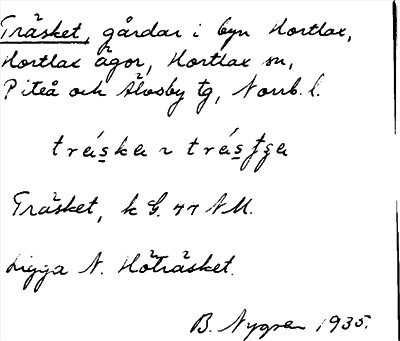 Träsket, gårdar i byn Hortlax,
Hortlax ägor, Hortlax sn,
Piteå och Älvsby tg, Norrb. l.
tráska ~ trásʃʒa
Träsket, k G. 47 NM.
Ligga N. Höträsket.
B. Nygren 1935.